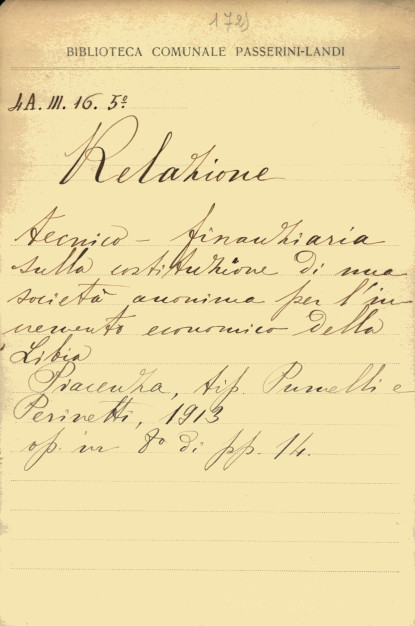 172)
BIBLIOTECA COMUNALE PASSERINI-LANDI
4A. III. 16. 5º
Relazione
tecnico - finanziaria
sulla costituzione di una
società anonima per l'in
cremento economico della
Libia
Piacenza, tip. Pumelli e
Perinetti, 1913
op. in 8º di pp. 14.